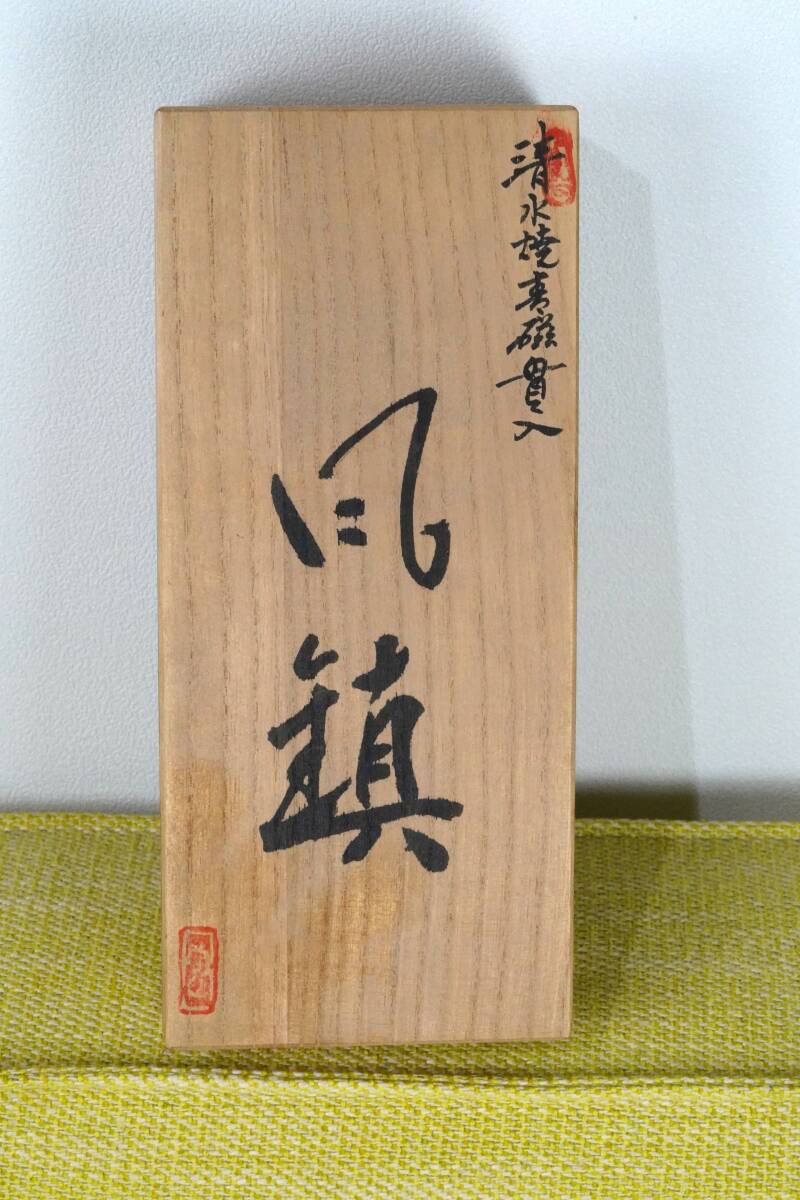 清水焼青磁貫入
風鎮